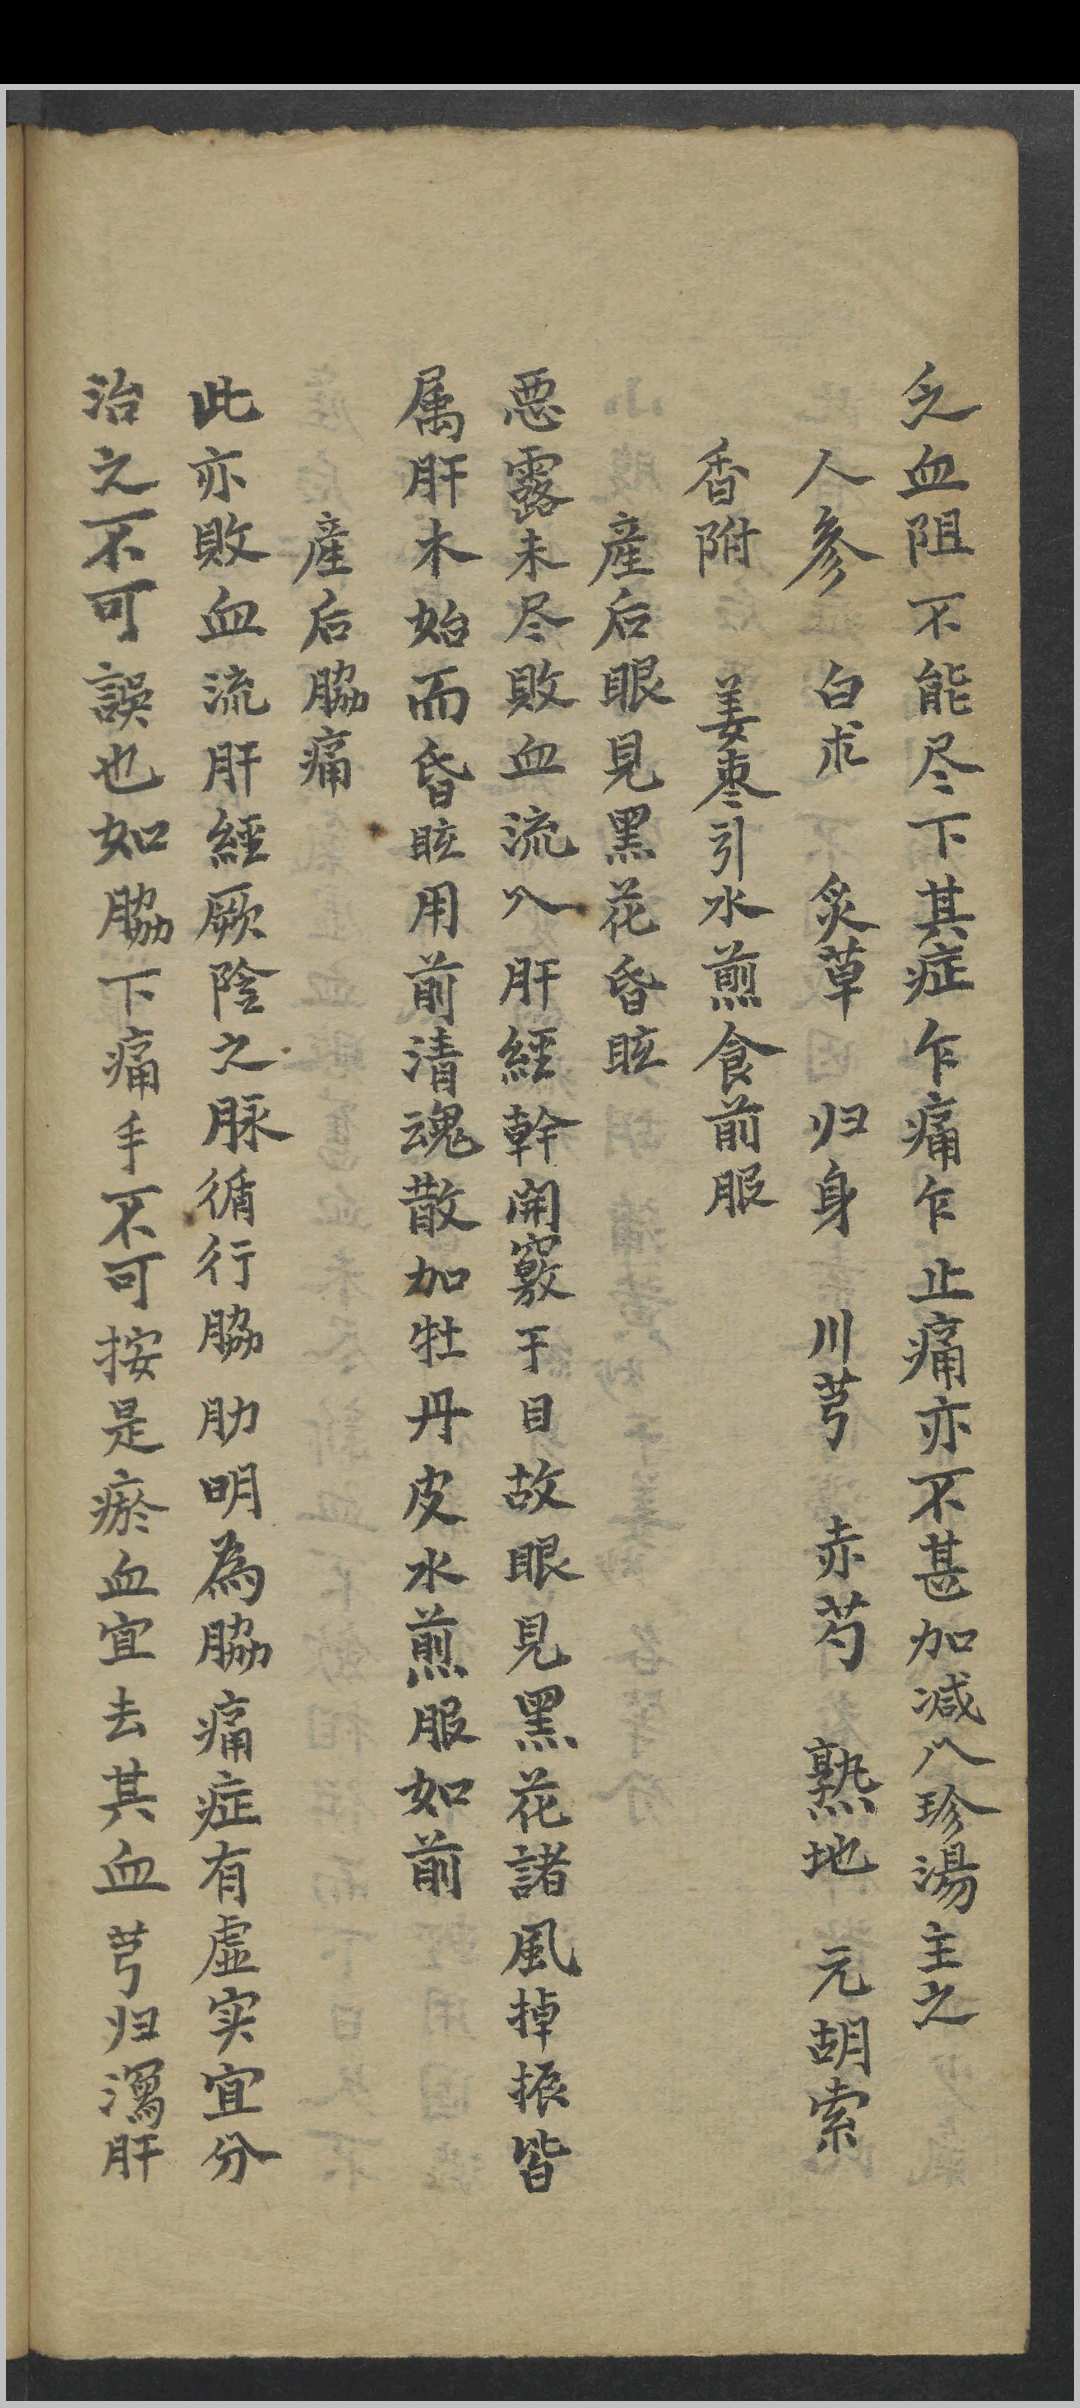 乏血阻不能尽下其症乍痛乍止痛亦不甚加減八珍湯主之
人參 白朮 炙草 归身 川芎 赤芍 熟地 元胡索
香附 姜枣引水煎食前服
産后眼見黑花昏眩
悪露未尽敗血流入肝經幹開竅于目故眼見黑花諸風掉振皆
属肝木始而昏眩用前清魂散加牡丹皮水煎服如前
産后脇痛
此亦敗血流肝經厥陰之脉循行脇肋明為脇痛症有虛实宜分
治之不可誤也如脇下痛手不可按是瘀血宜去其血芎归瀉肝